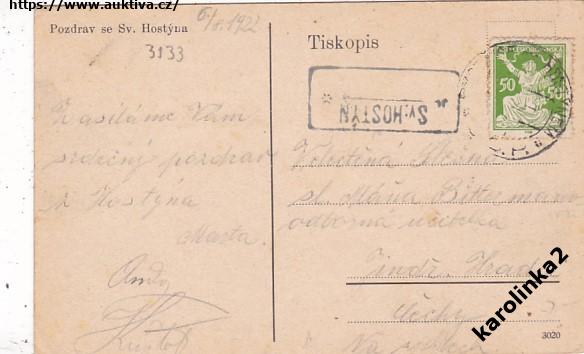 https://www.auktiva.cz/
Pozdrav se Sv. Hostýna
6/8. 1922
3133
Tiskopis
ČESKOSLOVENSKÁ
50 50
SV. HOSTÝN
Zasíláme Vám
srdečný pozdrav
z Hostýna
Marta.
Velectěná Slečna
sl. Máňa
odborná učitelka
Jindř. Hradec
Čechy
3020
karolinka2